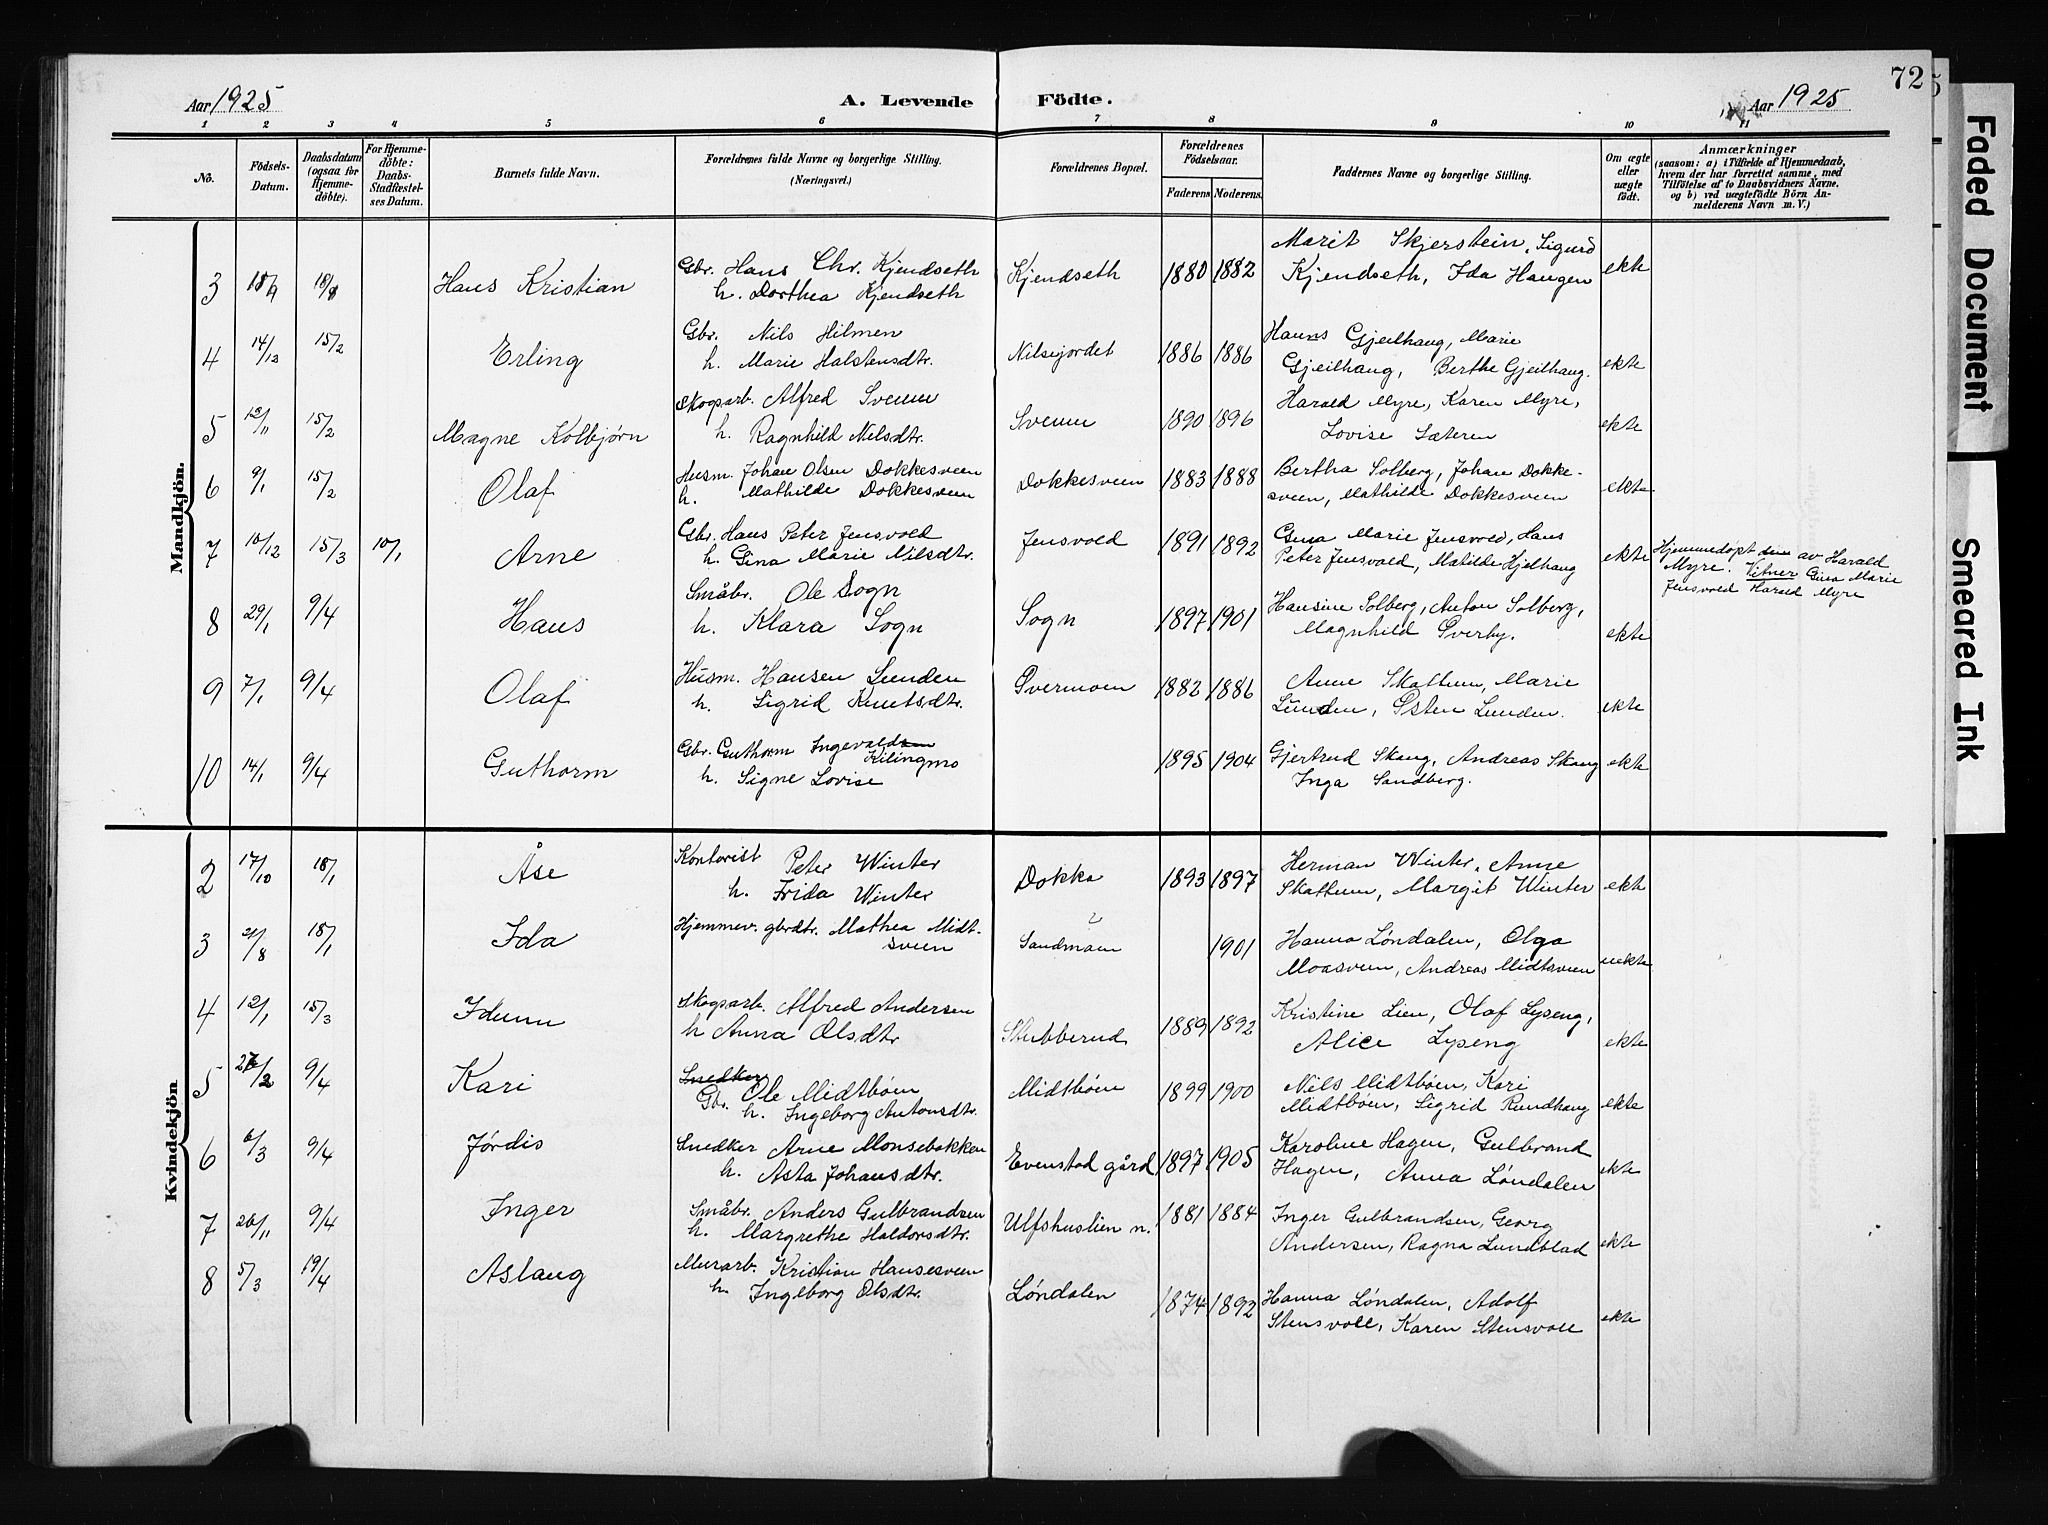 72
Aar 1925 A. Levende Födte. Aar 1925
1 2 3 4 5 6 7 8 9 10 11
No. Födsels-Datum. Daabsdatum (ogsaa for Hjemmedöbte). For Hjemmedöbte: Daabs-Stadfæstelses Datum. Barnets fulde Navn. Forældrenes fulde Navne og borgerlige Stilling. (Næringsvei.) Forældrenes Bopæl. Forældrenes Födselsaar. Faderens Moderens. Faddernes Navne og borgerlige Stilling. Om ægte eller uægte födt. Anmærkninger (saasom: a) i Tilfælde af Hjemmedaab, hvem der har forrettet samme, med Tilföielse af to Daabsvidners Navne, og b) ved uægtefödte Börn Anmelderens Navn m. V.)
Mandkjön.
3 Hans Kristian Gbr. Hans Chr. Kjendseth Kjendseth 1880 1882 Marit Skjerstein, Sigurd ekte
h. Dorthea Kjendseth Kjendseth, Ida Haugen
4 14/12 15/2 Erling Gbr. Nils Hilmen Nilsejordet 1886 1886 Hans Gjeilhaug, Marie ekte
h. Marie Halstensdtr. Gjeilhaug, Berthe Gjeilhaug.
5 13/11 15/2 Magne Kolbjørn Skogsarb. Alfred Sveum Sveum 1890 1896 Harald Myre, Karen Myre, ekte
h. Ragnhild Nilsdtr. Lovise Sæteren
6 9/1 15/2 Olaf Husm. Johan Olsen Dokkesveen Dokkesveen 1883 1888 Bertha Solberg, Johan Dokke- ekte
h. Mathilde Dokkesveen sveen, Mathilde Dokkesveen
7 10/12 15/3 10/1 Arne Gbr. Hans Peter Jensvold Jensvold 1891 1892 Gina Marie Jensvold, Hans ekte Hjemmedøpt den av Harald
h. Gina Marie Nilsdtr. Peter Jensvold, Matilde Hjelhaug Myre. Vitner Gina Marie
Jensvold Harald Myre
8 29/1 9/4 Hans Småbr. Ole Sogn Sogn 1897 1901 Hansine Solberg, Anton Solberg, ekte
h. Klara Sogn Magnhild Øverby.
9 7/1 9/4 Olaf Husm. Hansen Lunden Øvermoen 1882 1886 Anne Skattum, Marie ekte
h. Sigrid Knutsdtr. Lunden, Østen Lunden.
10 14/1 9/4 Guthorm Gbr. Guthorm Ingevaldsen 1895 1904 Gjertrud Skaug, Andreas Skaug ekte
Kilingmo
h. Signe Lovise Inga Sandberg.
Kvindekjön
2 17/10 18/1 Åse Kontorist Peter Winter Dokka 1893 1897 Herman Winter, Anne ekte
h. Frida Winter Skattum, Margit Winter
3 21/8 18/1 Ida Hjemmev. gbrdtr. Mathea Midt- 1901 Hanna Løndalen, Olga uekte
sveen Moasveen, Andreas Midtsveen
4 12/1 15/3 Idunn Skogsarb. Alfred Andersen Stubberud 1889 1892 Kristine Lien, Olaf Lyseng, ekte
h Anna Olsdtr Alice Lyseng
5 9/4 Kari Snedker Midtbøen 1899 1900 Nils Midtbøen, Kari ekte
Gbr. Ole Midtbøen
h. Ingeborg Antonsdtr. Midtbøen, Sigrid Rundhaug
6 6/3 9/4 Jørdis Snedker Arne Monsebakken Evenstad gård 1897 1905 Karoline Hagen, Gulbrand ekte
h. Asta Johansdtr. Hagen, Anna Løndalen
7 26/11 9/4 Inger Småbr. Anders Gulbrandsen Ulfshuslien n. 1881 1884 Inger Gulbrandsen, Georg ekte
h. Margrethe Haldorsdtr. Andersen, Ragna Lundblad
8 5/3 19/4 Aslaug Murarb. Kristian Hansesveen Løndalen 1874 1892 Hanna Løndalen, Adolf ekte
h. Ingeborg Olsdtr. Stensvoll, Karen Stensvoll
Faded Document
Smeared Ink